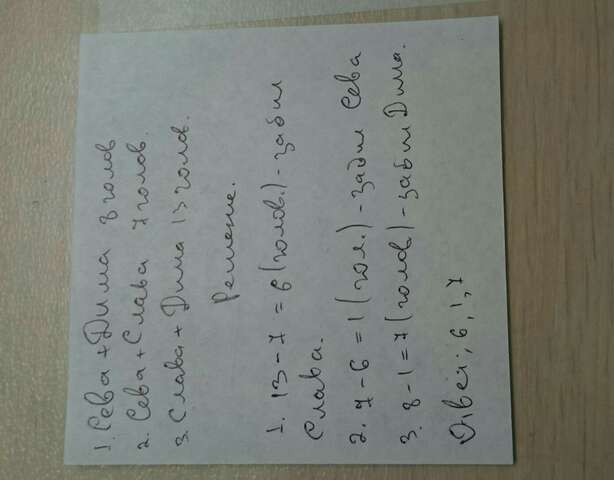 1. Сева + Дима 8 голов
2. Сева + Слава 7 голов.
3. Слава + Дима 13 голов.
Решение.
1. 13 - 7 = 6 (голов.) - забил
Слава.
2. 7 - 6 = 1 (гол.) - забил Сева
3. 8 - 1 = 7 (голов) - забил Дима.
Ответ: 6, 1, 7